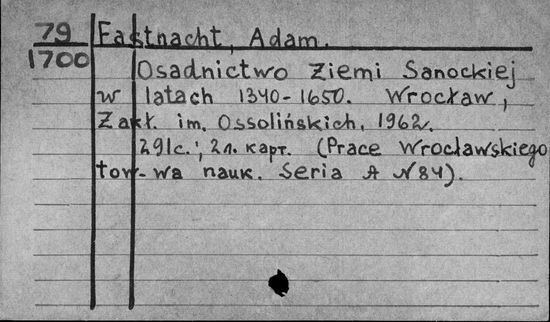 79 Fastnacht, Adam.
1700
Osadnictwo Ziemi Sanockiej
w latach 1340-1650. Wrocław,
Zakł. im. Ossolińskich, 1962.
291с.; 2л. карт. (Prace Wrocławskiego
tow-wa nauk. Seria A N84).